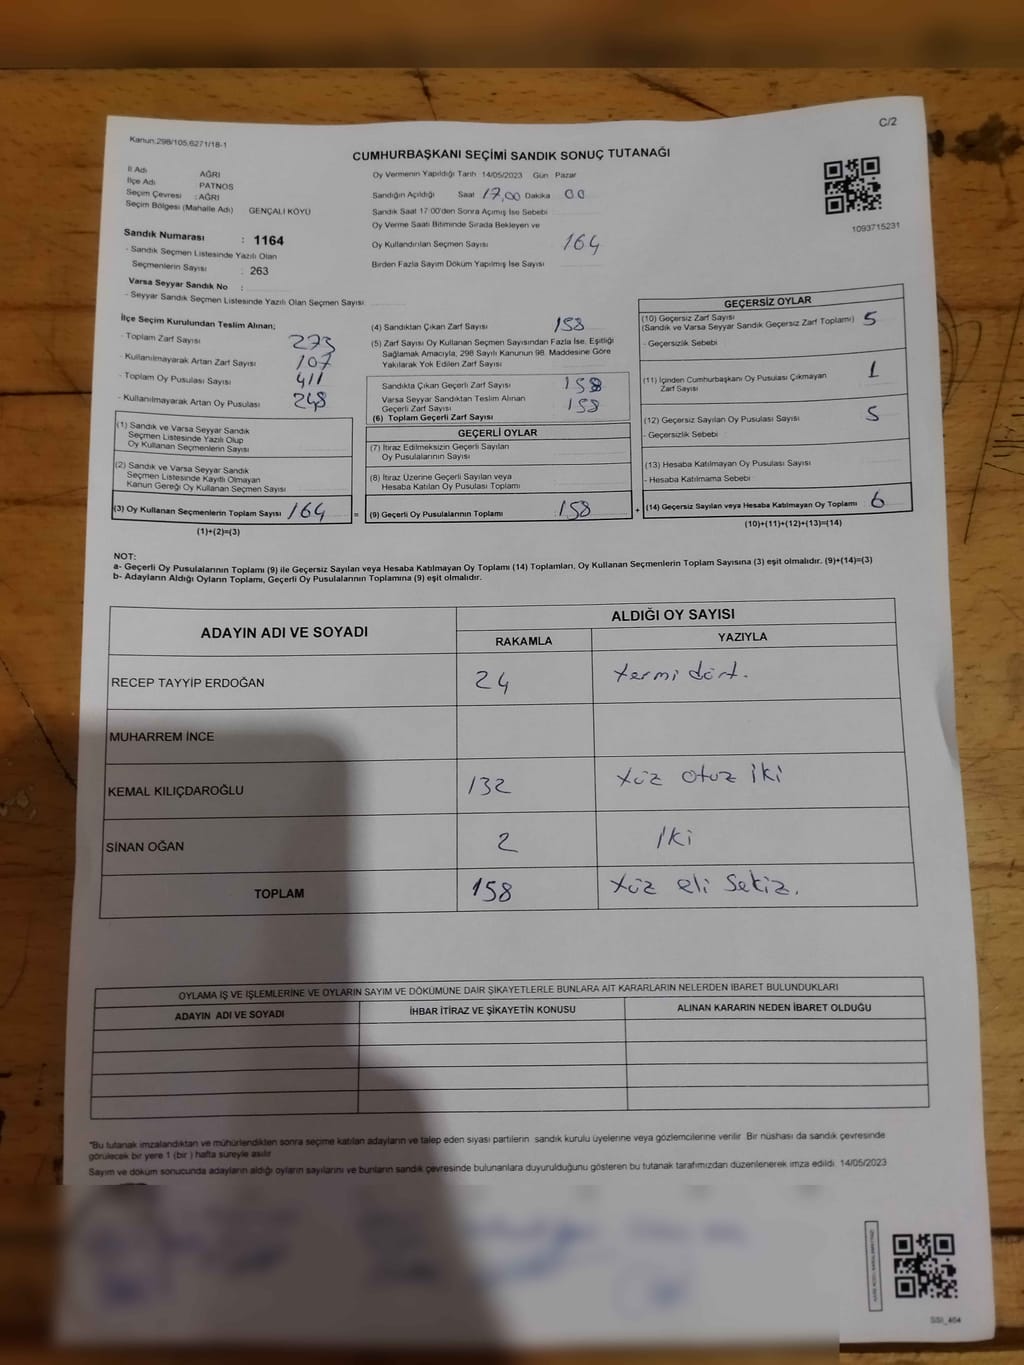 C/2
Kanun;298/105,6271/18-1
CUMHURBAŞKANI SEÇİMİ SANDIK SONUÇ TUTANAĞI
İl Adı AĞRI
İlçe Adı PATNOS
Seçim Çevresi : AĞRI
Seçim Bölgesi (Mahalle Adı) GENÇALİ KÖYÜ
Sandık Numarası : 1164
- Sandık Seçmen Listesinde Yazılı Olan
Seçmenlerin Sayısı : 263
Varsa Seyyar Sandık No :
- Seyyar Sandık Seçmen Listesinde Yazılı Olan Seçmen Sayısı
Oy Vermenin Yapıldığı Tarih 14/05/2023 Gün Pazar
Sandığın Açıldığı Saat 17,00 Dakika 00
Sandık Saat 17:00'den Sonra Açımış İse Sebebi
Oy Verme Saati Bitiminde Sırada Bekleyen ve
Oy Kullandırılan Seçmen Sayısı 164
Birden Fazla Sayım Döküm Yapılmış İse Sayısı
1093715231
İlçe Seçim Kurulundan Teslim Alınan;
- Toplam Zarf Sayısı 273
- Kullanılmayarak Artan Zarf Sayısı 107
- Toplam Oy Pusulası Sayısı 411
- Kullanılmayarak Artan Oy Pusulası 248
(1) Sandık ve Varsa Seyyar Sandık
Seçmen Listesinde Yazılı Olup
Oy Kullanan Seçmenlerin Sayısı
(2) Sandık ve Varsa Seyyar Sandık
Seçmen Listesinde Kayıtlı Olmayan
Kanun Gereği Oy Kullanan Seçmen Sayısı
(3) Oy Kullanan Seçmenlerin Toplam Sayısı 164 =
(1)+(2)=(3)
(4) Sandıktan Çıkan Zarf Sayısı 158
(5) Zarf Sayısı Oy Kullanan Seçmen Sayısından Fazla İse, Eşitliği
Sağlamak Amacıyla, 298 Sayılı Kanunun 98. Maddesine Göre
Yakılarak Yok Edilen Zarf Sayısı
Sandıkta Çıkan Geçerli Zarf Sayısı 158
Varsa Seyyar Sandıktan Teslim Alınan
Geçerli Zarf Sayısı 158
(6) Toplam Geçerli Zarf Sayısı
GEÇERLİ OYLAR
(7) İtiraz Edilmeksizin Geçerli Sayılan
Oy Pusulalarının Sayısı
(8) İtiraz Üzerine Geçerli Sayılan veya
Hesaba Katılan Oy Pusulası Toplamı
(9) Geçerli Oy Pusulalarının Toplamı : 158 +
GEÇERSİZ OYLAR
(10) Geçersiz Zarf Sayısı
(Sandık ve Varsa Seyyar Sandık Geçersiz Zarf Toplamı) 5
- Geçersizlik Sebebi
(11) İçinden Cumhurbaşkanı Oy Pusulası Çıkmayan
Zarf Sayısı 1
(12) Geçersiz Sayılan Oy Pusulası Sayısı 5
- Geçersizlik Sebebi
(13) Hesaba Katılmayan Oy Pusulası Sayısı
- Hesaba Katılmama Sebebi
(14) Geçersiz Sayılan veya Hesaba Katılmayan Oy Toplamı : 6
(10)+(11)+(12)+(13)=(14)
NOT:
a- Geçerli Oy Pusulalarının Toplamı (9) ile Geçersiz Sayılan veya Hesaba Katılmayan Oy Toplamı (14) Toplamları, Oy Kullanan Seçmenlerin Toplam Sayısına (3) eşit olmalıdır. (9)+(14)=(3)
b- Adayların Aldığı Oyların Toplamı, Geçerli Oy Pusulalarının Toplamına (9) eşit olmalıdır.
ADAYIN ADI VE SOYADI
ALDIĞI OY SAYISI
RAKAMLA YAZIYLA
RECEP TAYYİP ERDOĞAN 24 Yermi dört.
MUHARREM İNCE
KEMAL KILIÇDAROĞLU 132 Yüz otuz iki
SİNAN OĞAN 2 İki
TOPLAM 158 Yüz eli Sekiz.
OYLAMA İŞ VE İŞLEMLERİNE VE OYLARIN SAYIM VE DÖKÜMÜNE DAİR ŞİKAYETLERLE BUNLARA AİT KARARLARIN NELERDEN İBARET BULUNDUKLARI
ADAYIN ADI VE SOYADI İHBAR İTİRAZ VE ŞİKAYETİN KONUSU ALINAN KARARIN NEDEN İBARET OLDUĞU
*Bu tutanak imzalandıktan ve mühürlendikten sonra seçime katılan adayların ve talep eden siyasi partilerin sandık kurulu üyelerine veya gözlemcilerine verilir. Bir nüshası da sandık çevresinde
görülecek bir yere 1 (bir) hafta süreyle asılır
Sayım ve döküm sonucunda adayların aldığı oyların sayılarını ve bunların sandık çevresinde bulunanlara duyurulduğunu gösteren bu tutanak tarafımızdan düzenlenerek imza edildi. 14/05/2023
SSI_464